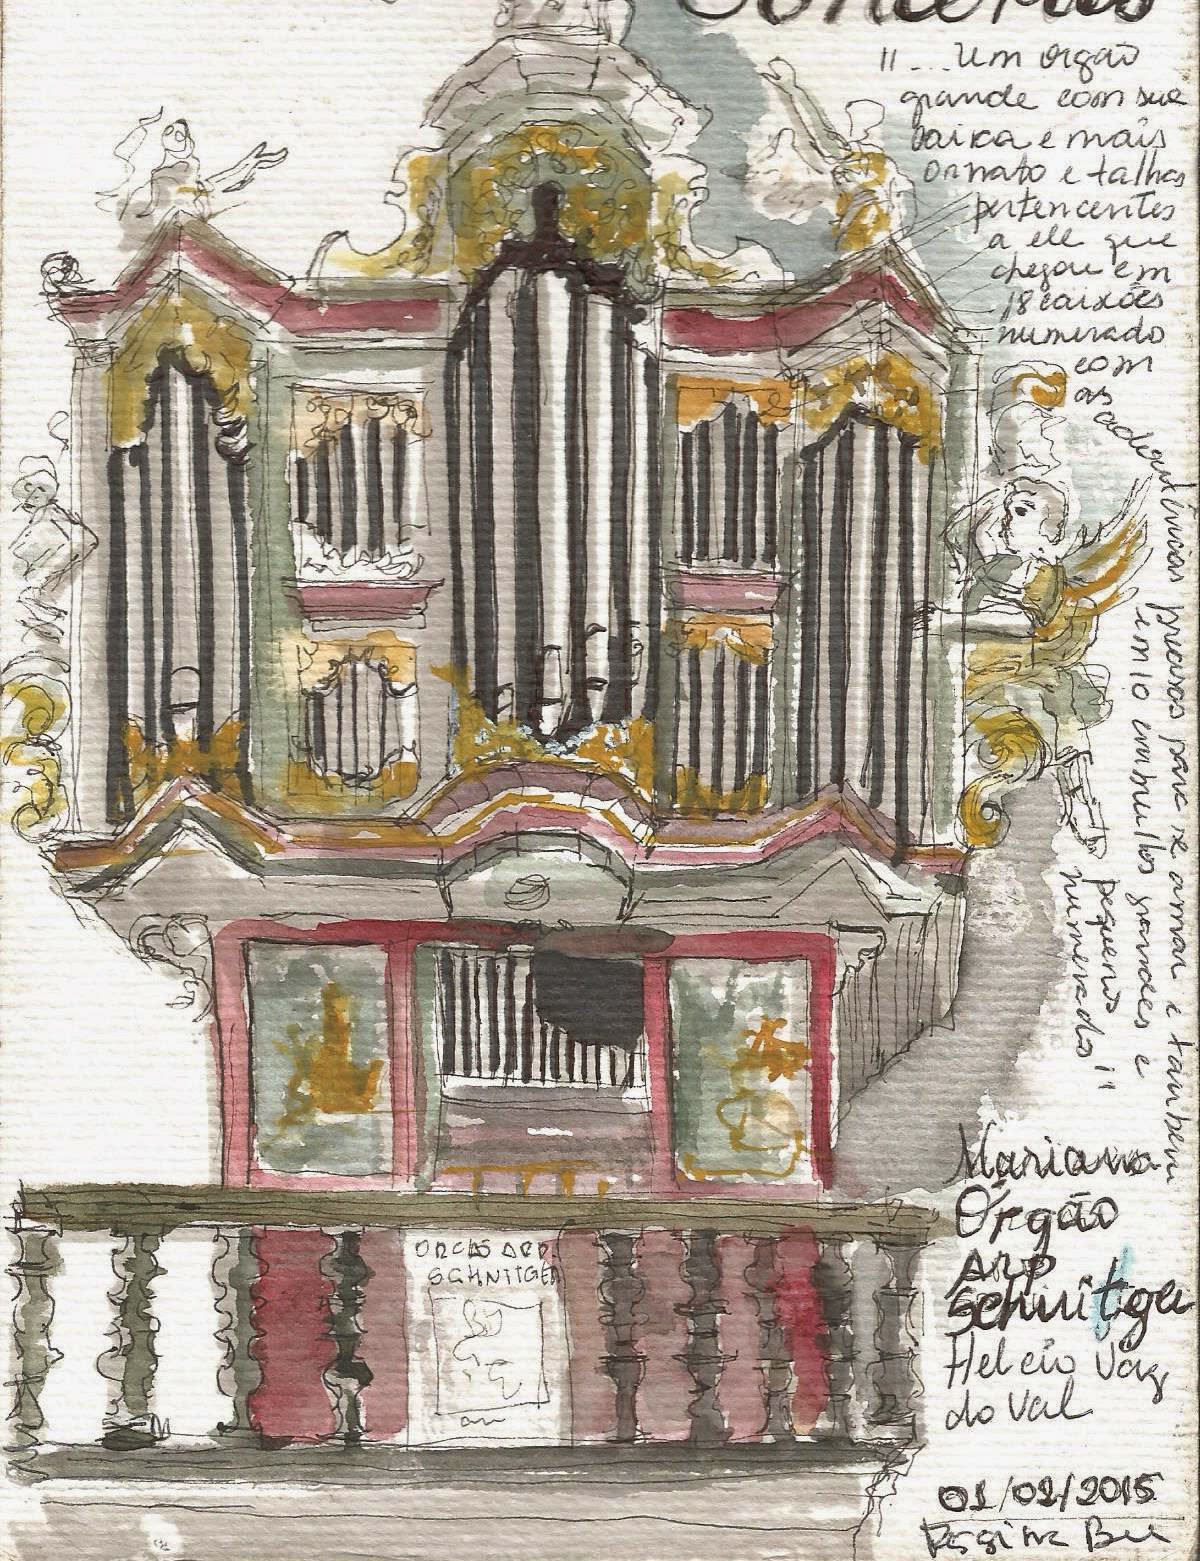 Concertos
"...Um orgão
grande com sua
caixa e mais
ornato e talhas
pertencentes
a ele que
chegou em
18 caixões
numerado
com
as
advertências precisas para se armar e tambem
imio embrulhos grandes e
pequenos
numerados"
Mariana
Órgão
Arp
Schnitger
Helcio Vaz
do Val
ORGÃO ARP
SCHNITGER
01/02/2015
Regina